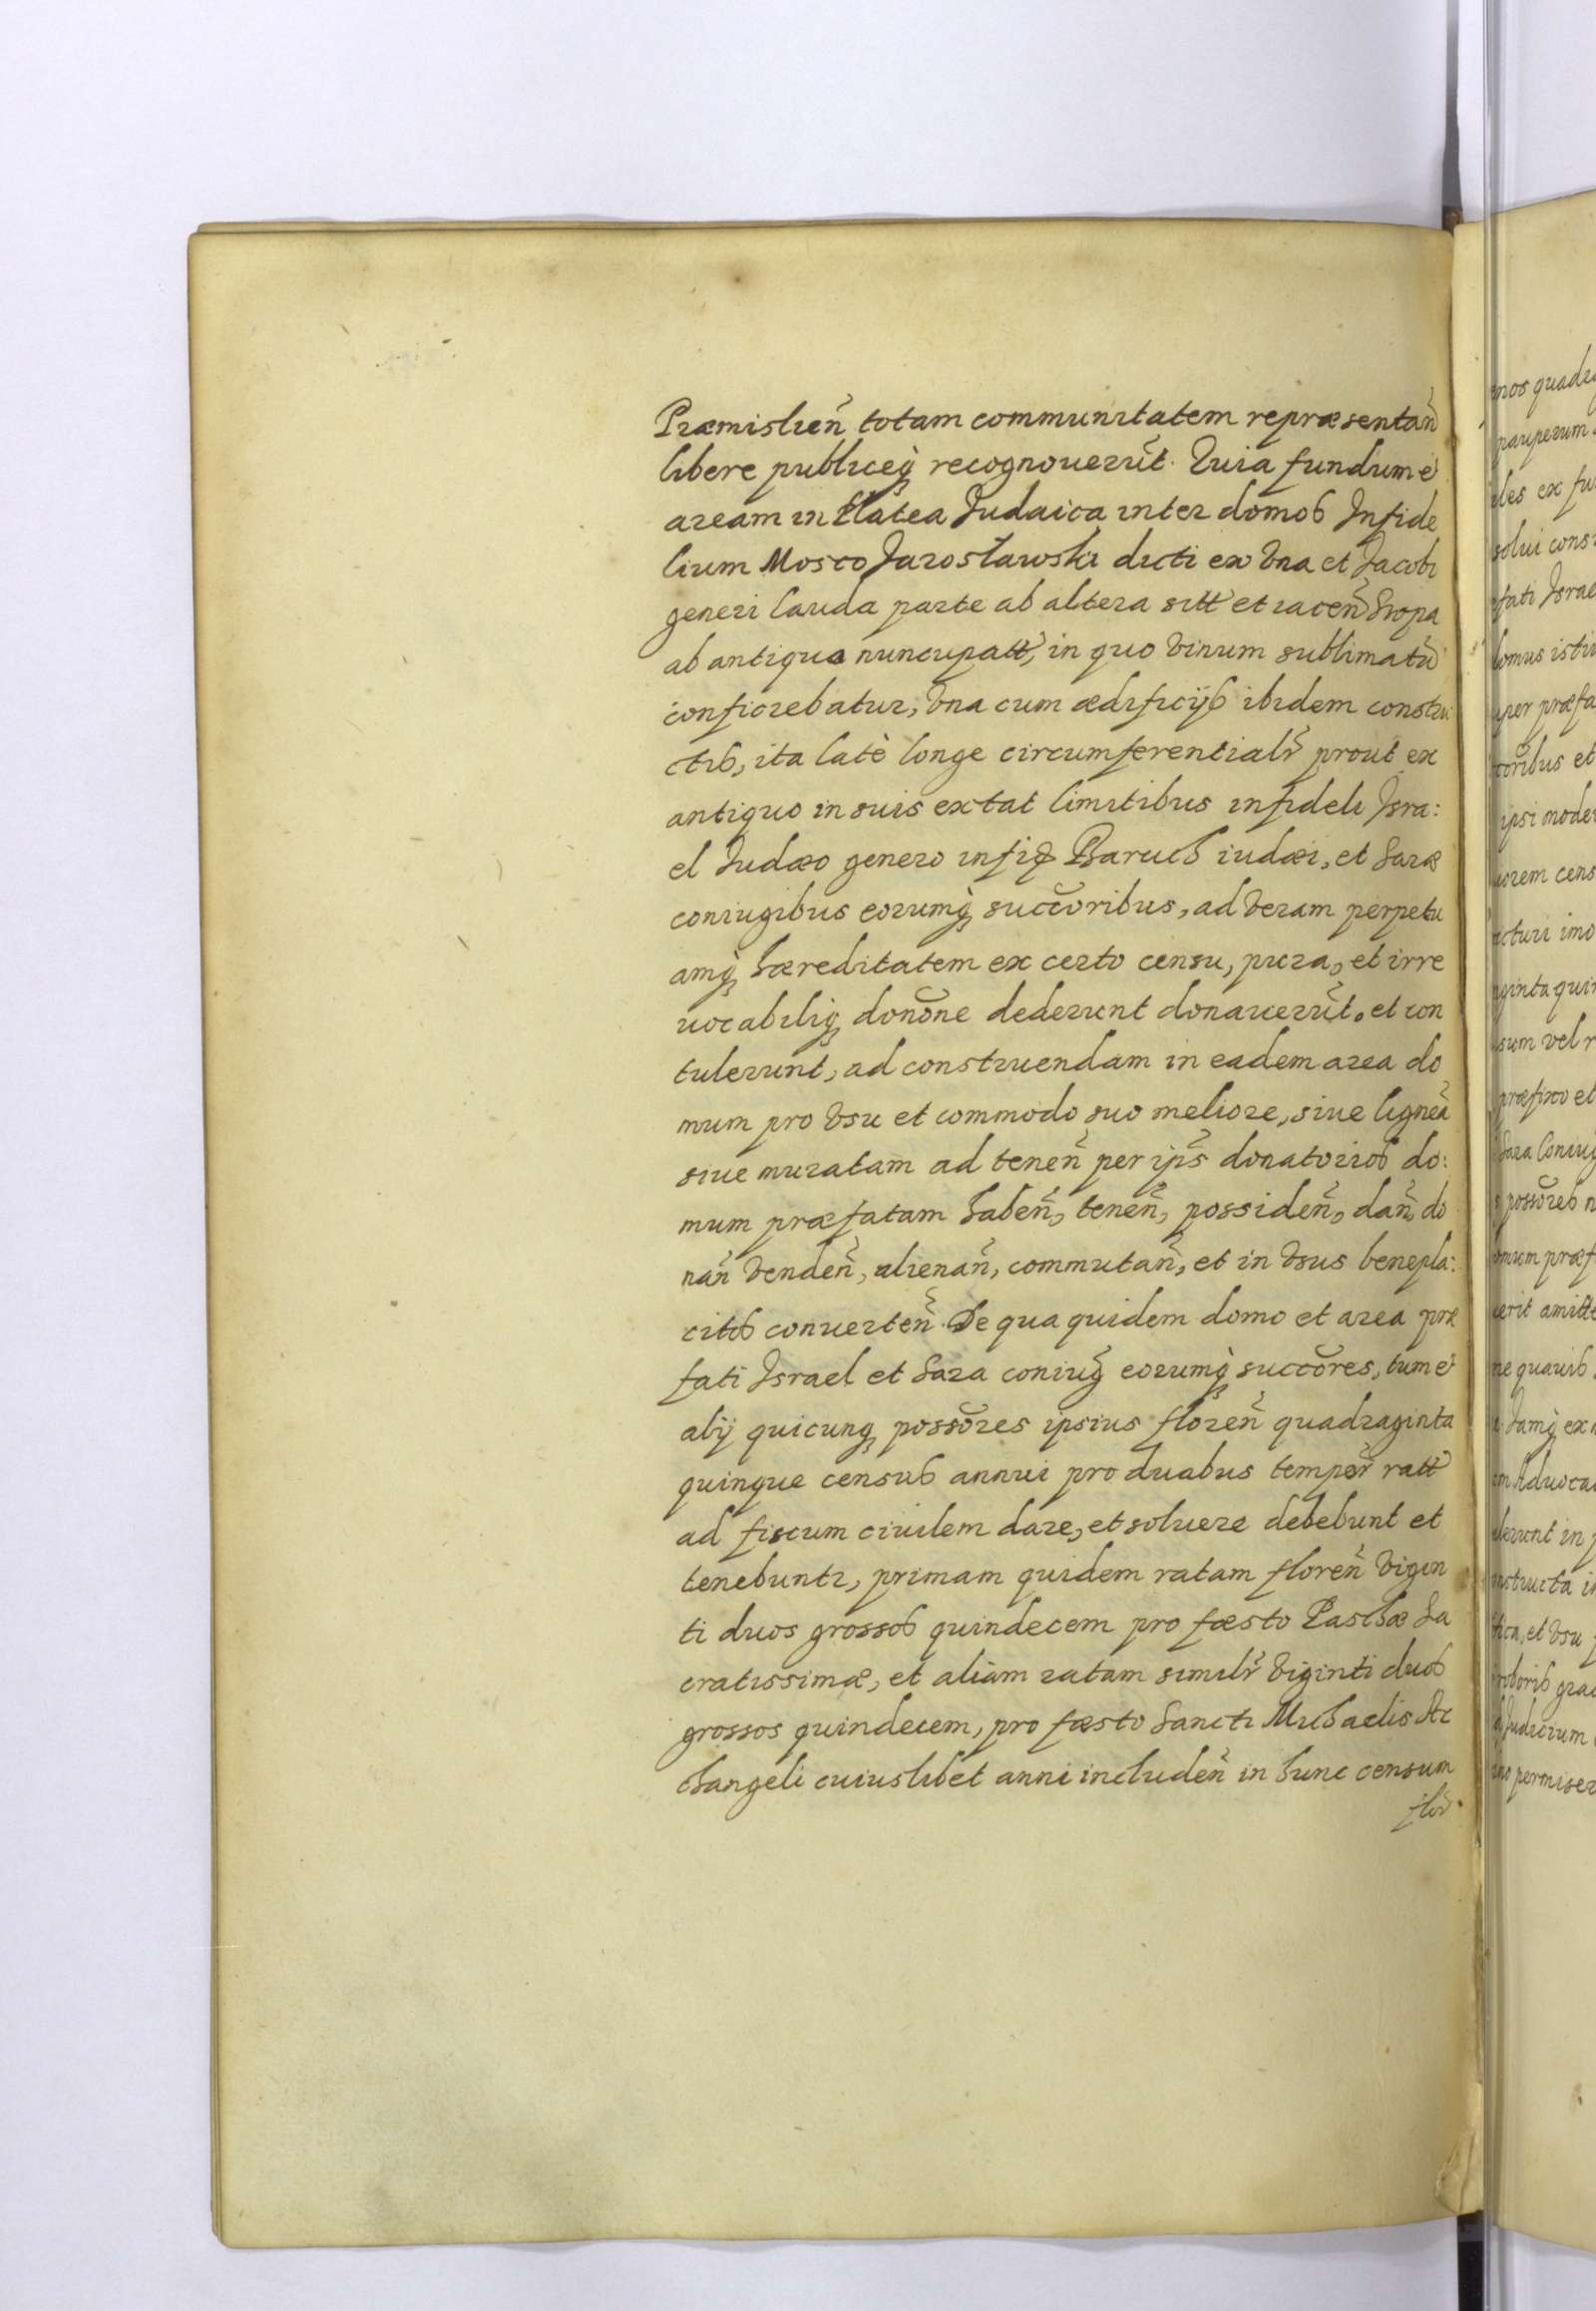 Præmislien̄ totam communitatem repræsentan̄
libere publiceq̨ recognouerūt. Quia fundum et
aream in Platea Judaica inter domos Infide
lium Mosco Jarosławski dicti ex vna et Jacobi
generi Lauda parte ab altera sitt et iacen̄ Słopa
ab antiquo nuncupatt, in quo vinum sublimatū
conficiebatur, vna cum ædificijs ibidem constru
ctis, ita latè longe circumferentialr̄ prout ex
antiquo in suis extat limitibus infideli Isra:
el Judæo genero infid Baruch iudæi, et Saræ
coniugibus eorumq̨ succōribus, ad veram perpetu
amq̨ hæreditatem ex certo censu, pura, et irre
uocabiliq̨ donōne dederunt donauerūt. et con
tulerunt, ad construendam in eadem area do
mum pro vsu et commodo suo meliore, siue ligneā
siue muratam ad tenen̄ per ips̄ donatorios do:
mum præfatam haben̄, tenen̄, possiden̄, dan̄, do
nan̄ venden̄, alienan̄, commutan̄, et in vsus benepla:
citos conuerten̄. De qua quidem domo et area præ
fati Israel et Sara coniug eorumq̨ succōres, tum et
alij quicunq̨ possōres ipsius floren̄ quadraginta
quinque census annui pro duabus temper̄ ratt
ad fiscum ciuilem dare, et soluere debebunt et
tenebuntr, primam quidem ratam floren̄ vigin
ti duos grossos quindecem pro fæsto Paschæ Sa
cratissimæ, et aliam ratam similr̄ viginti duos
grossos quindecem, pro fæsto Sancti Michaelis Ar
changeli cuiuslibet anni includen̄ in hunc censum
flor̄